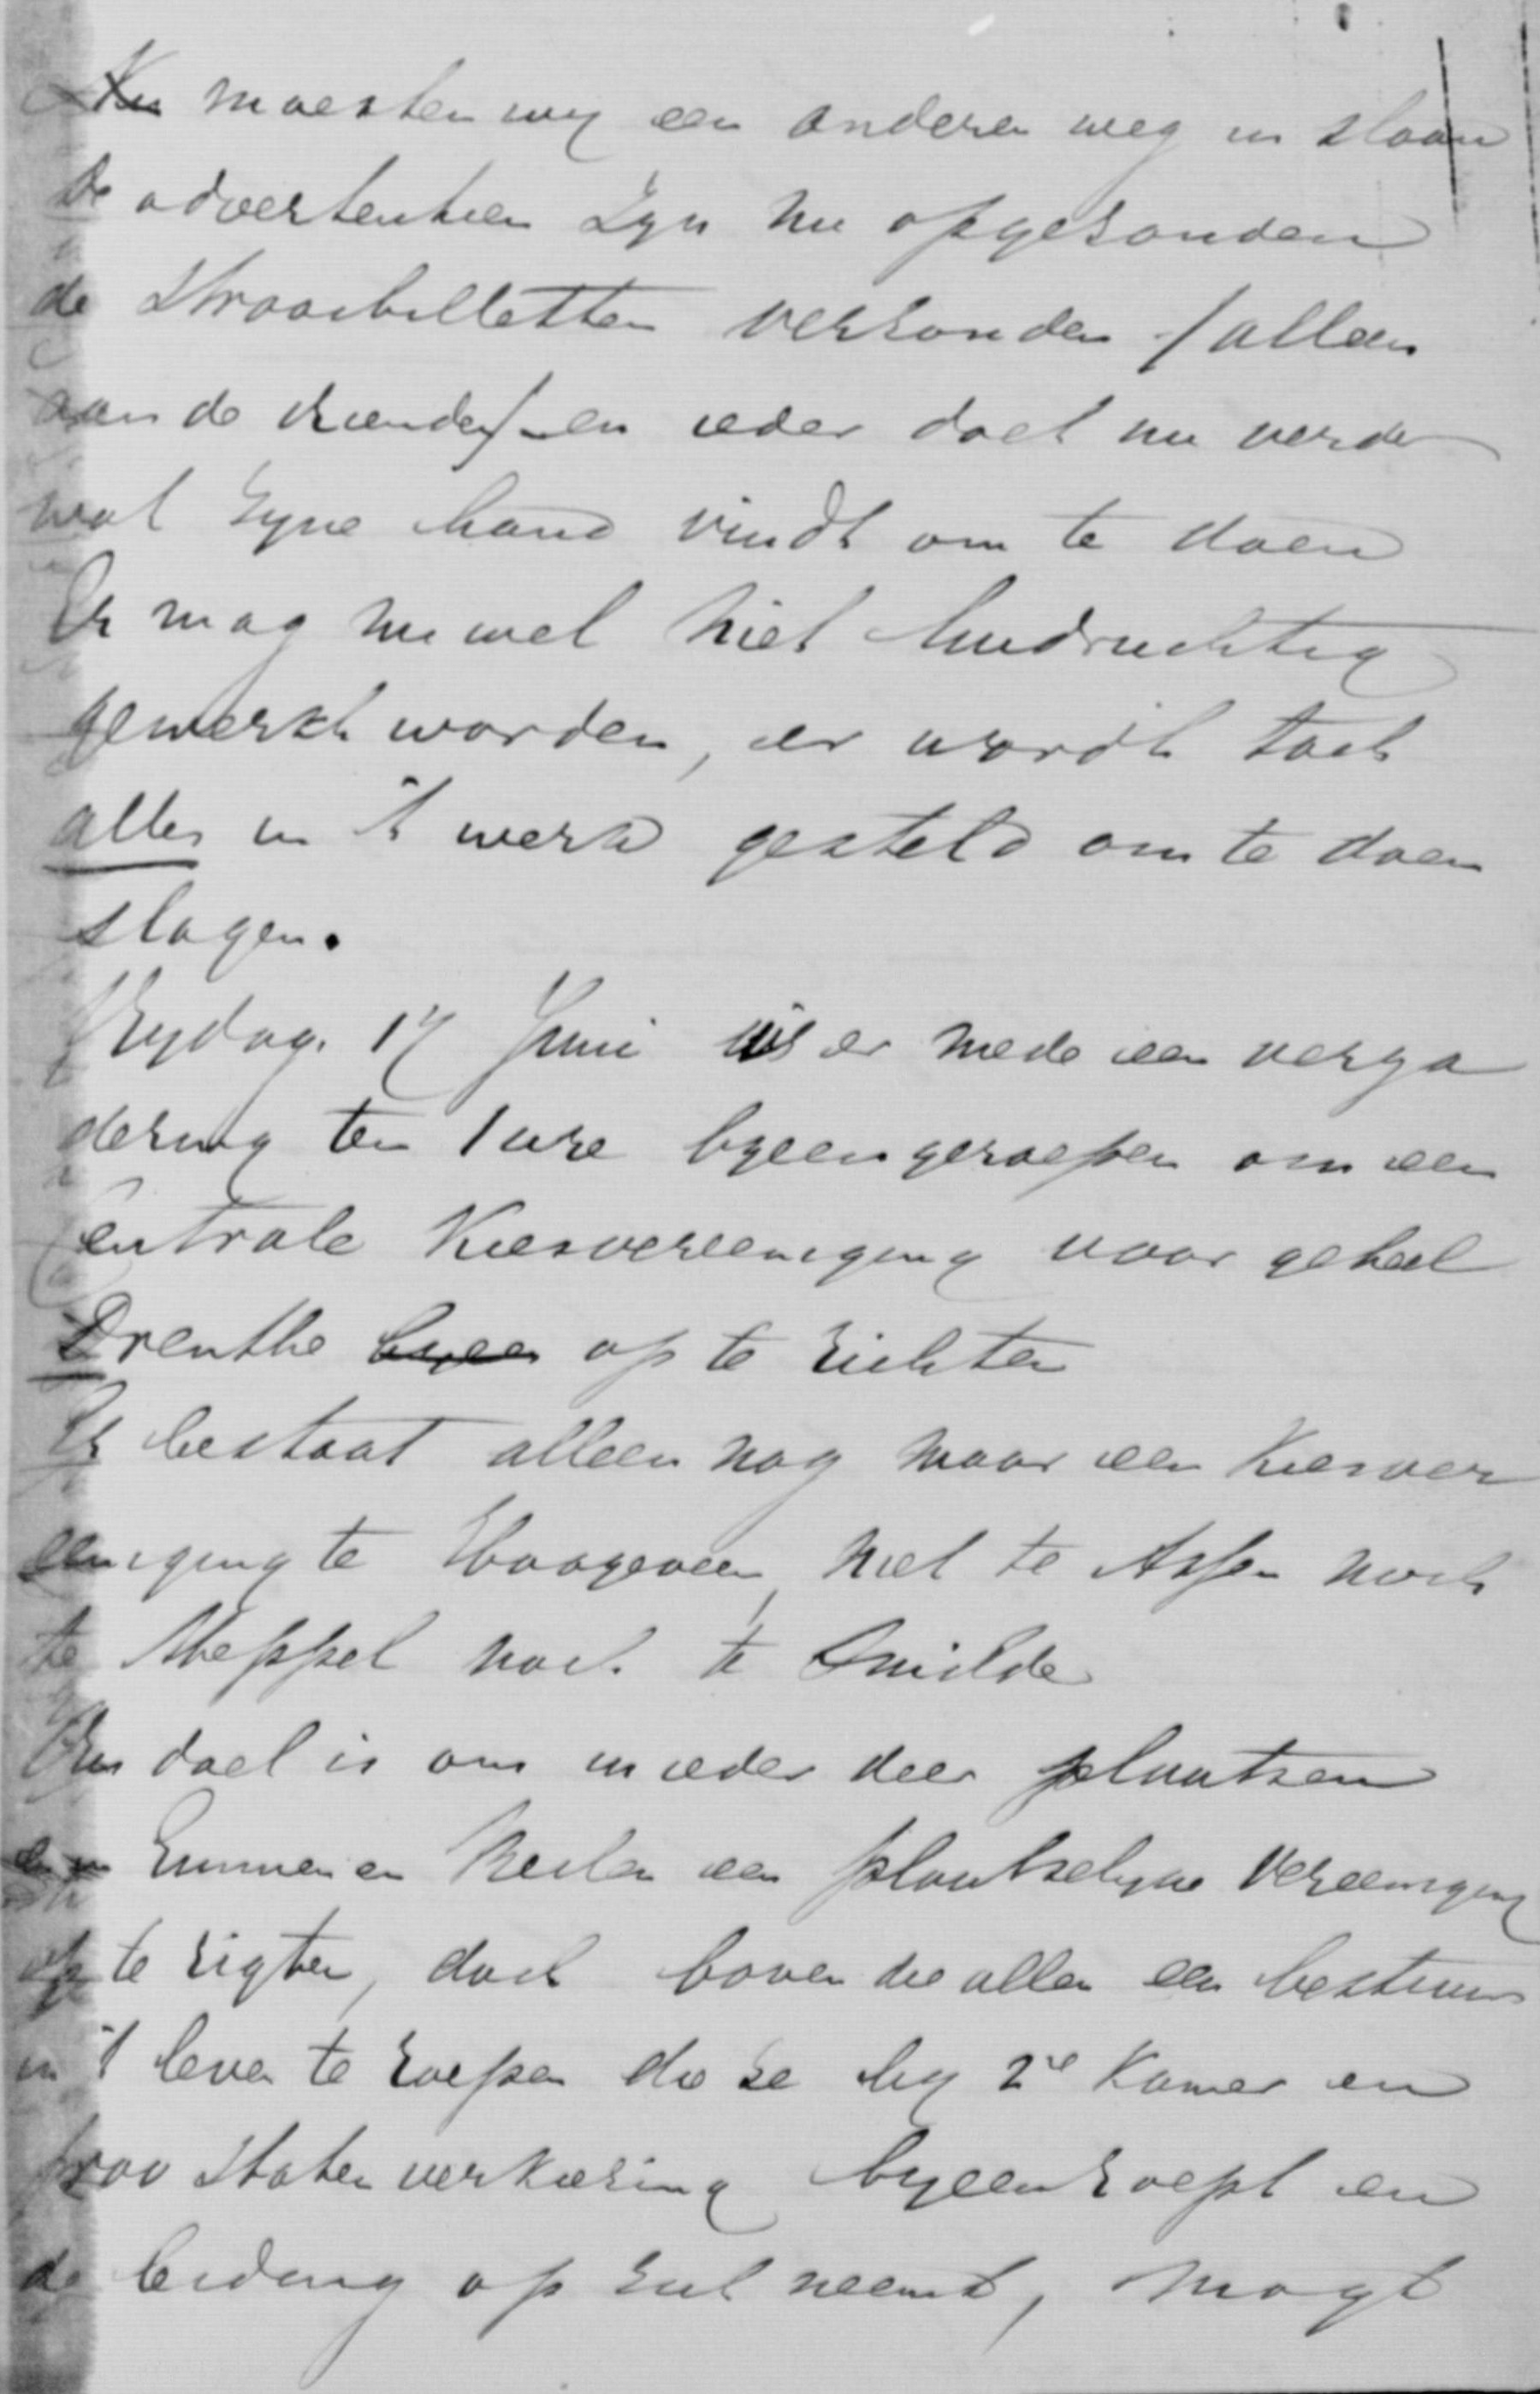 Nu moesten wij een anderen weg in slaan
De advertentien zyn nu opgezonden
de strooibilletten verzonden (alleen
aan de vrienden) en ieder doet nu verder
wat zyne hand vindt om te doen
Er mag nu wel niet luidruchtig
gewerkt worden, er wordt toch
alles in 't werk gesteld om te doen
slagen.
Vrydag 17 Juni is er mede een verga
dering ten 1 ure byeengeroepen om een
Centrale Kiesvereeniging voor geheel
Drenthe byeen op te richten
Er bestaat alleen nog maar een Kiesver
eeniging te Hoogeveen, niet te Assen noch
te Meppel noch te Smilde
Ons doel is om in ieder deer plaatsen
en in Emmen en Beilen een plaatselyke Vereeniging
op te rigten, doch boven die allen een bestuur
in 't leven te roepen die ze by 2e Kamer en
prov staten verkiezing byeenroept en
de leiding op zich neemt, mogt